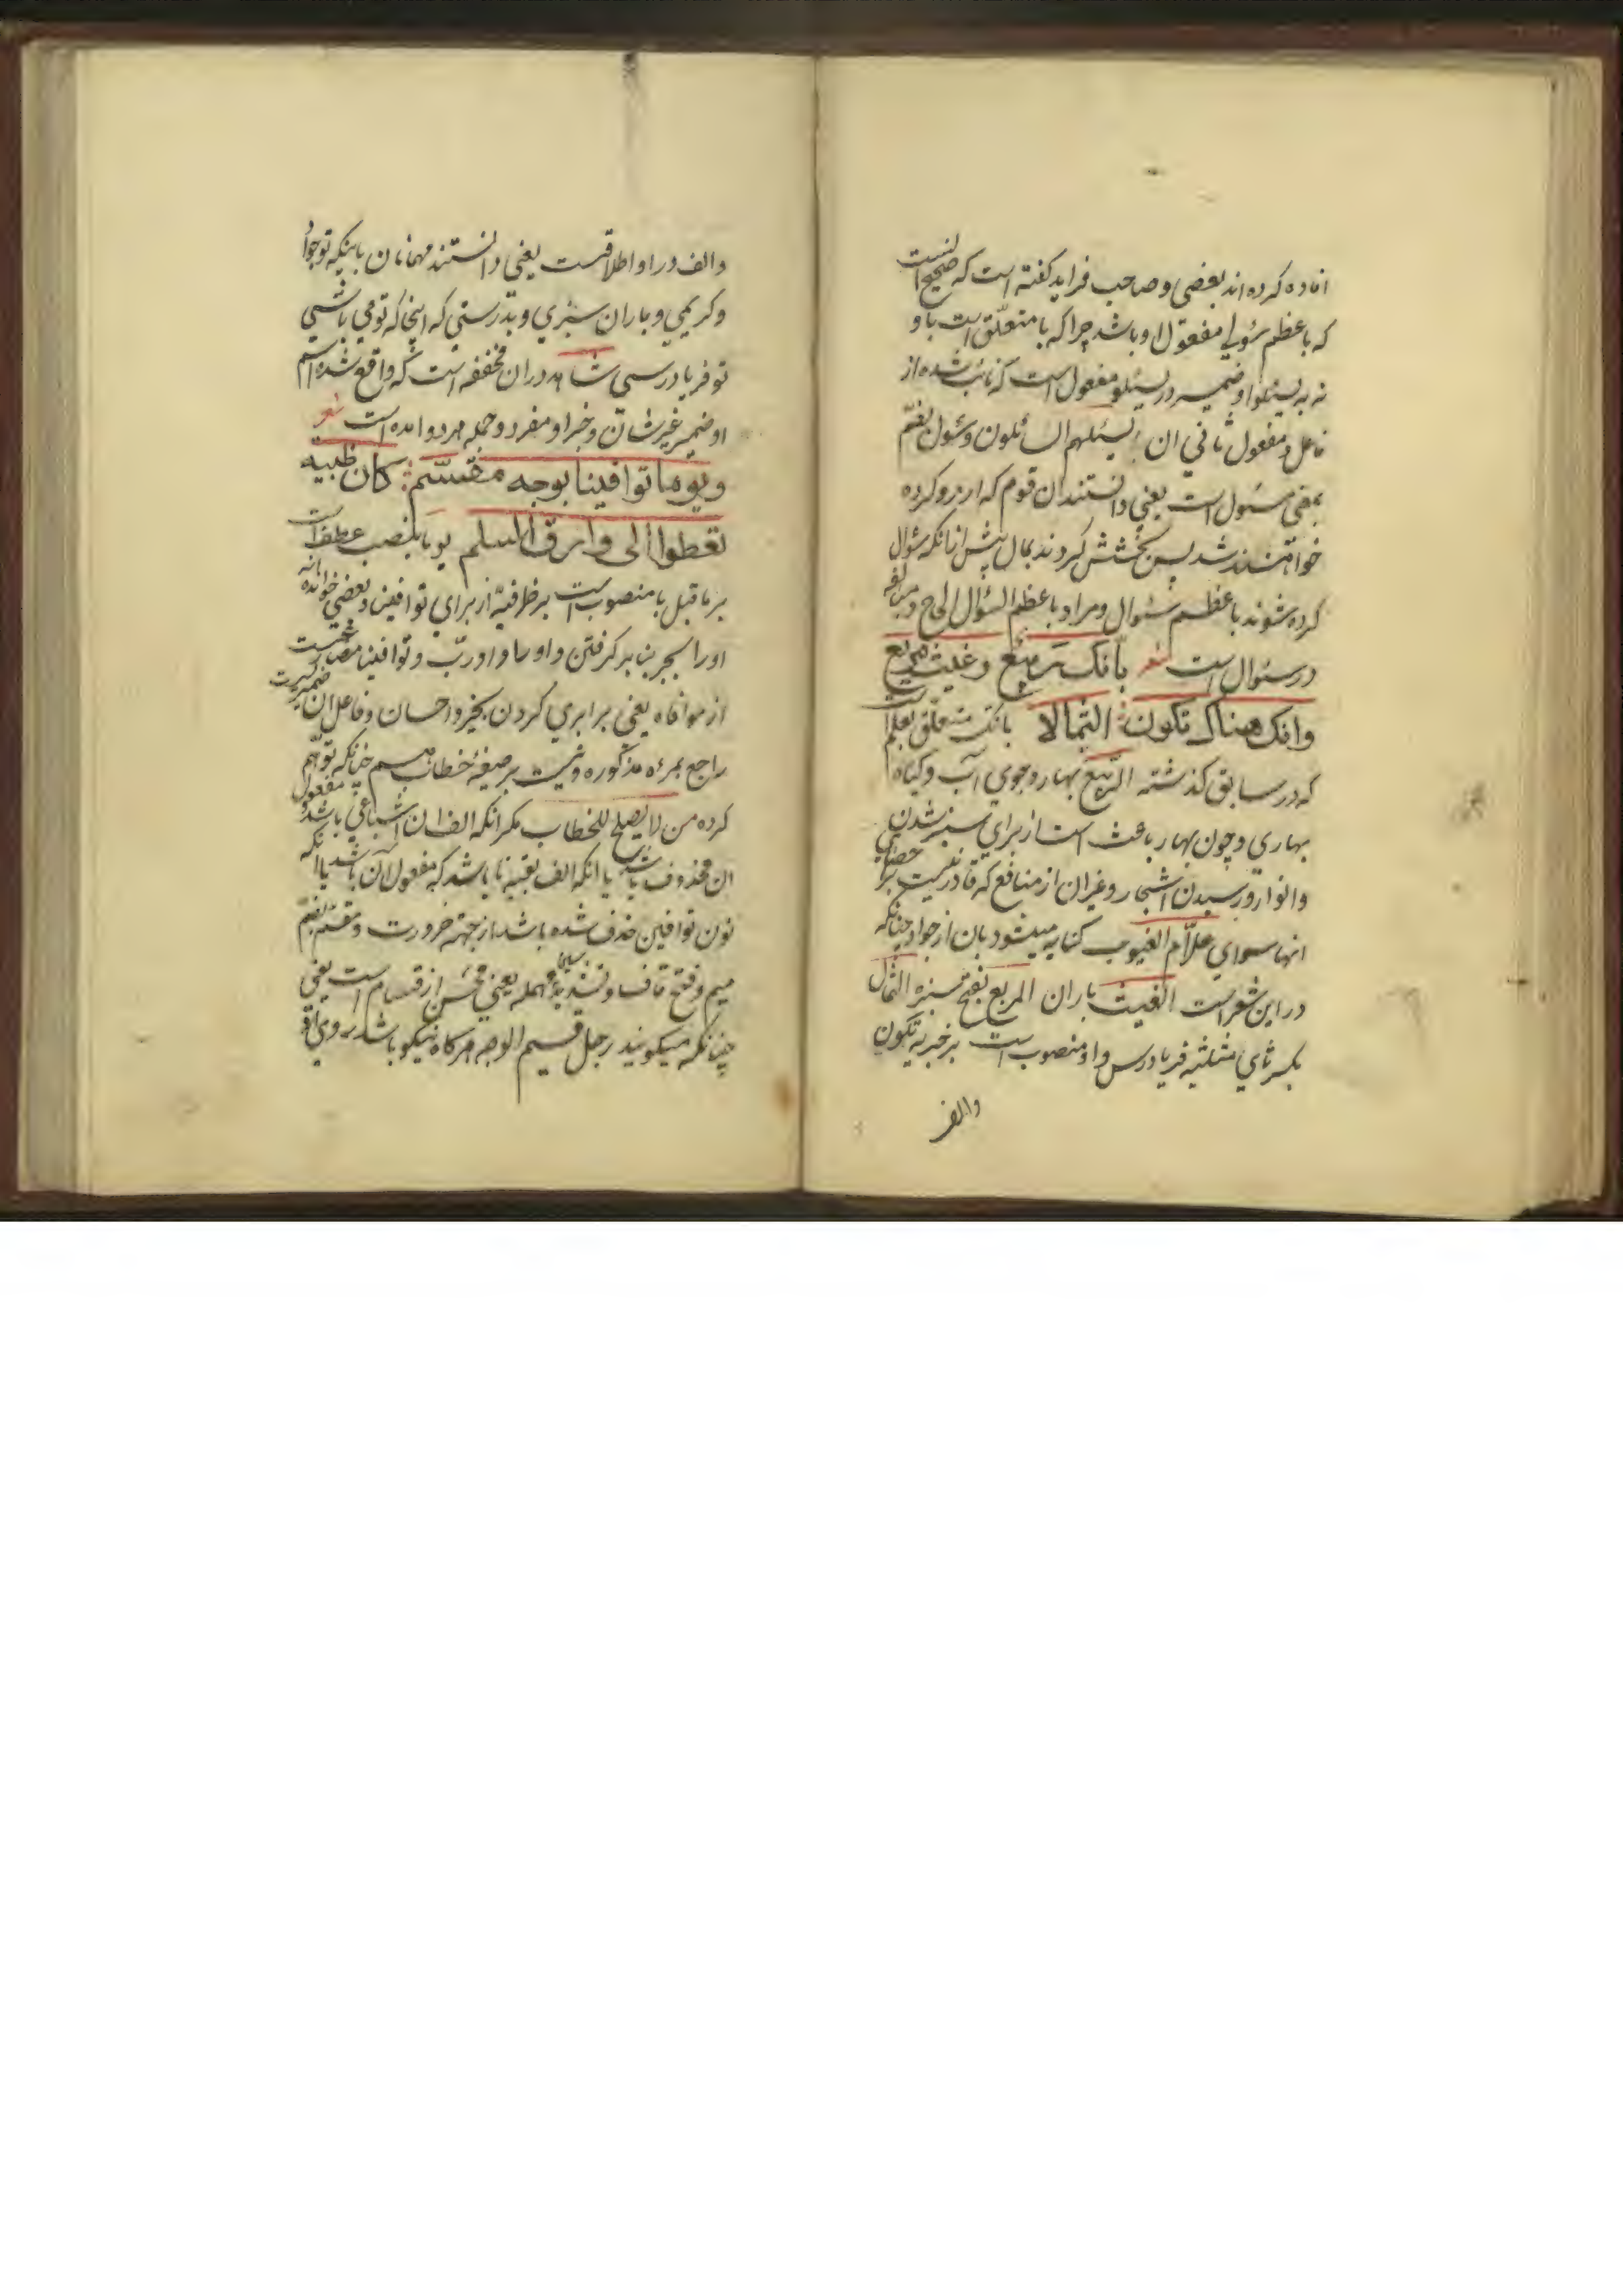 افاده کرده اند بعضی و صاحب فراید کفته است که صحیح آنست
که باعظم سُؤلی مفعول او باشد چراکه با متعلّق است باو
نه به یسئلوا و ضمیر در یسئلو مفعول است که نائب شده از
فاعل و مفعول ثانی ان یسئلهم السائلون و سُول بضمّ
بمعنی مسئول است یعنی دانستند ان قوم که ارزو کرده
خواهنند شد پس بخشش کردند بمال پیش از انکه سُؤال
کرده شوند باعظم سُئوال و مراد باعظم السُؤال الحاح و مبالغه
در سئوال است شعر بأنک ربیع و غیث مریع
وانک هناک تکون الثمالا بانک متعلّق بعلم است
که در سابق کذشته الربیع بهار و جوی آب و کیاه
بهاری و چون بهار باعث است از برای سبز شدن
و انوار و رسیدن اشجار و غیران از منافع که قادر نیست بر احصای
انها سوای علّام الغیوب کنایه میشود بان از جواد چنانکه
در این شعر است الغیث باران المریع بفتح سبزه الثمال
بکسر ثای مثلثه فریادرس و او منصوب است بر خبریه تکون
والف
والف در او اطلاقست یعنی دانستند مهمانان باینکه تو جواد
و کریمی و باران سبزی و بدرستی که اینجا که تو می باشی
تو فریادرسی شاهد در ان مخففه است که واقع شده اسم
او ضمیر غیر شان و خبر او مفرد و جمله هر دو امده است شعر
ویوما توافینا بوجه مقسّم کان ظبیه
تعطوا الی وارق السلم یوما بنصب عطف است
بر ماقبل یا منصوب است بر ظرفیّه از برای توافینا و بعضی خوانده‌اند
او را بجر بنا بر کرفتن واو را واو ربّ و توافینا مضارعست
از موافاه یعنی برابری کردن بخیر و احسان و فاعل ان ضمیریست
راجع بمرءه مذکوره و نیست بر صیغهٔ خطاب چنانکه توهّم
کرده من لا یصلح للخطاب مکر انکه الف ان اشباعی باشد و مفعول
ان محذوف باشد یا انکه الف بقیه نا باشد که مفعول آن باشد یا انکه
نون توافین حذف شده باشد از جهة ضرورت و مقسّم بضم
میم و فتح قاف و تشدید سین مهمله یعنی محسن از قسام است یعنی
چنانکه میکویند رجل قسیم الوجه هرکاه نیکو باشد روی او